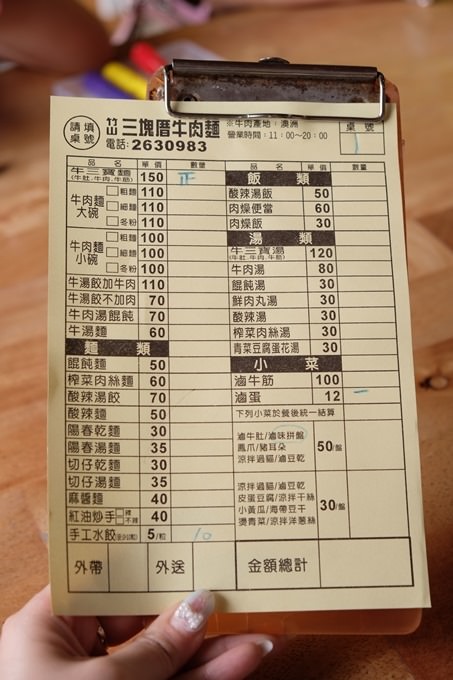 請填桌號
竹山 三塊厝牛肉麵
電話:2630983
※牛肉產地:澳洲
營業時間:11:00~20:00
桌號
1
品名 單價 數量
牛三寶麵(牛肚.牛肉.牛筋) 150 正
牛肉麵大碗
□粗麵 110
□細麵 110
□冬粉 110
牛肉麵小碗
□粗麵 100
□細麵 100
□冬粉 100
牛湯餃加牛肉 110
牛湯餃不加肉 70
牛肉湯餛飩 70
牛湯麵 60
麵類
餛飩麵 50
榨菜肉絲麵 60
酸辣湯餃 70
酸辣麵 50
陽春乾麵 30
陽春湯麵 35
切仔乾麵 30
切仔湯麵 35
麻醬麵 40
紅油炒手 □辣 □不辣 40
手工水餃 5/粒 10
外帶 外送
品名 單價 數量
飯類
酸辣湯飯 50
肉燥便當 60
肉燥飯 30
湯類
牛三寶湯(牛肚.牛肉.牛筋) 120
牛肉湯 80
餛飩湯 30
鮮肉丸湯 30
酸辣湯 30
榨菜肉絲湯 30
青菜豆腐蛋花湯 30
小菜
滷牛筋 100
滷蛋 12 一
下列小菜於餐後統一結算
滷牛肚/滷味拼盤
鳳爪/豬耳朵
涼拌過貓/滷豆乾
50/盤
涼拌過貓/滷豆乾
皮蛋豆腐/涼拌干絲
小黃瓜/海帶豆干
燙青菜/涼拌洋蔥絲
30/盤
金額總計